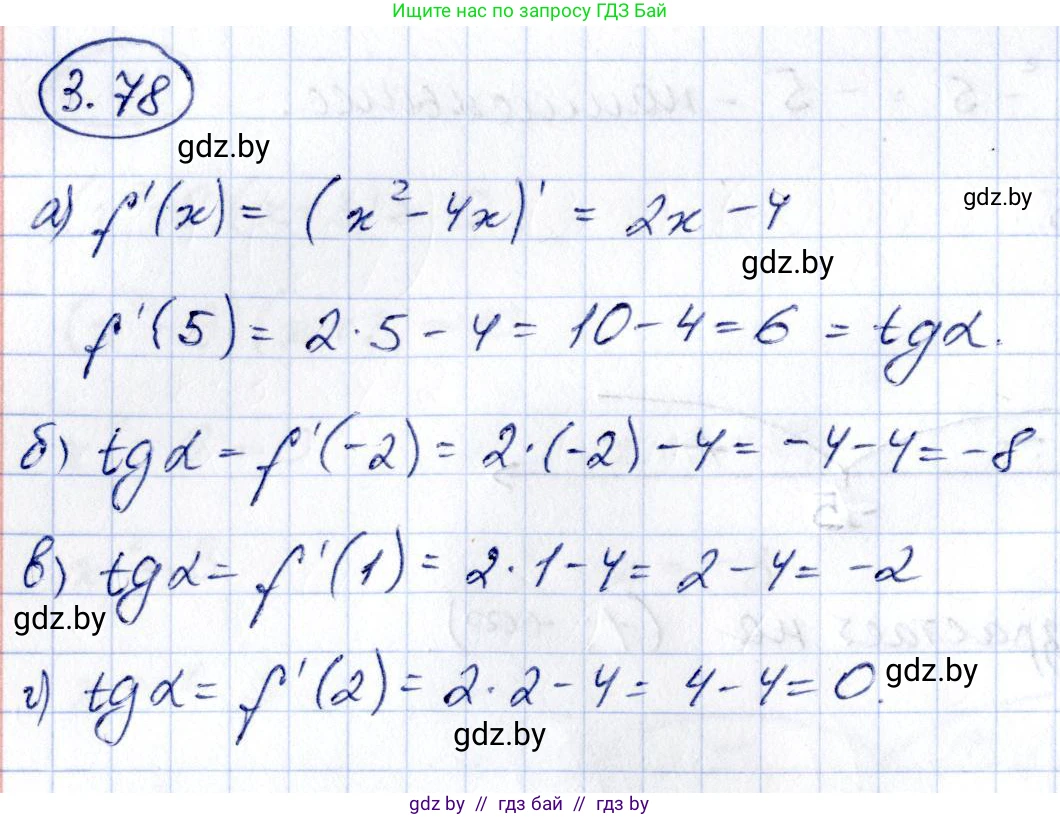 Ищите нас по запросу ГДЗ Бай
3.78
gdz.by
а) f'(x) = (x² - 4x)' = 2x - 4
gdz.by
gdz.by
f'(5) = 2·5 - 4 = 10 - 4 = 6 = tgα.
б) tgα = f'(-2) = 2·(-2) - 4 = -4 - 4 = -8
в) tgα = f'(1) = 2·1 - 4 = 2 - 4 = -2
gdz.by
г) tgα = f'(2) = 2·2 - 4 = 4 - 4 = 0.
gdz.by
gdz.by
gdz.by // гдз бай // гдз by